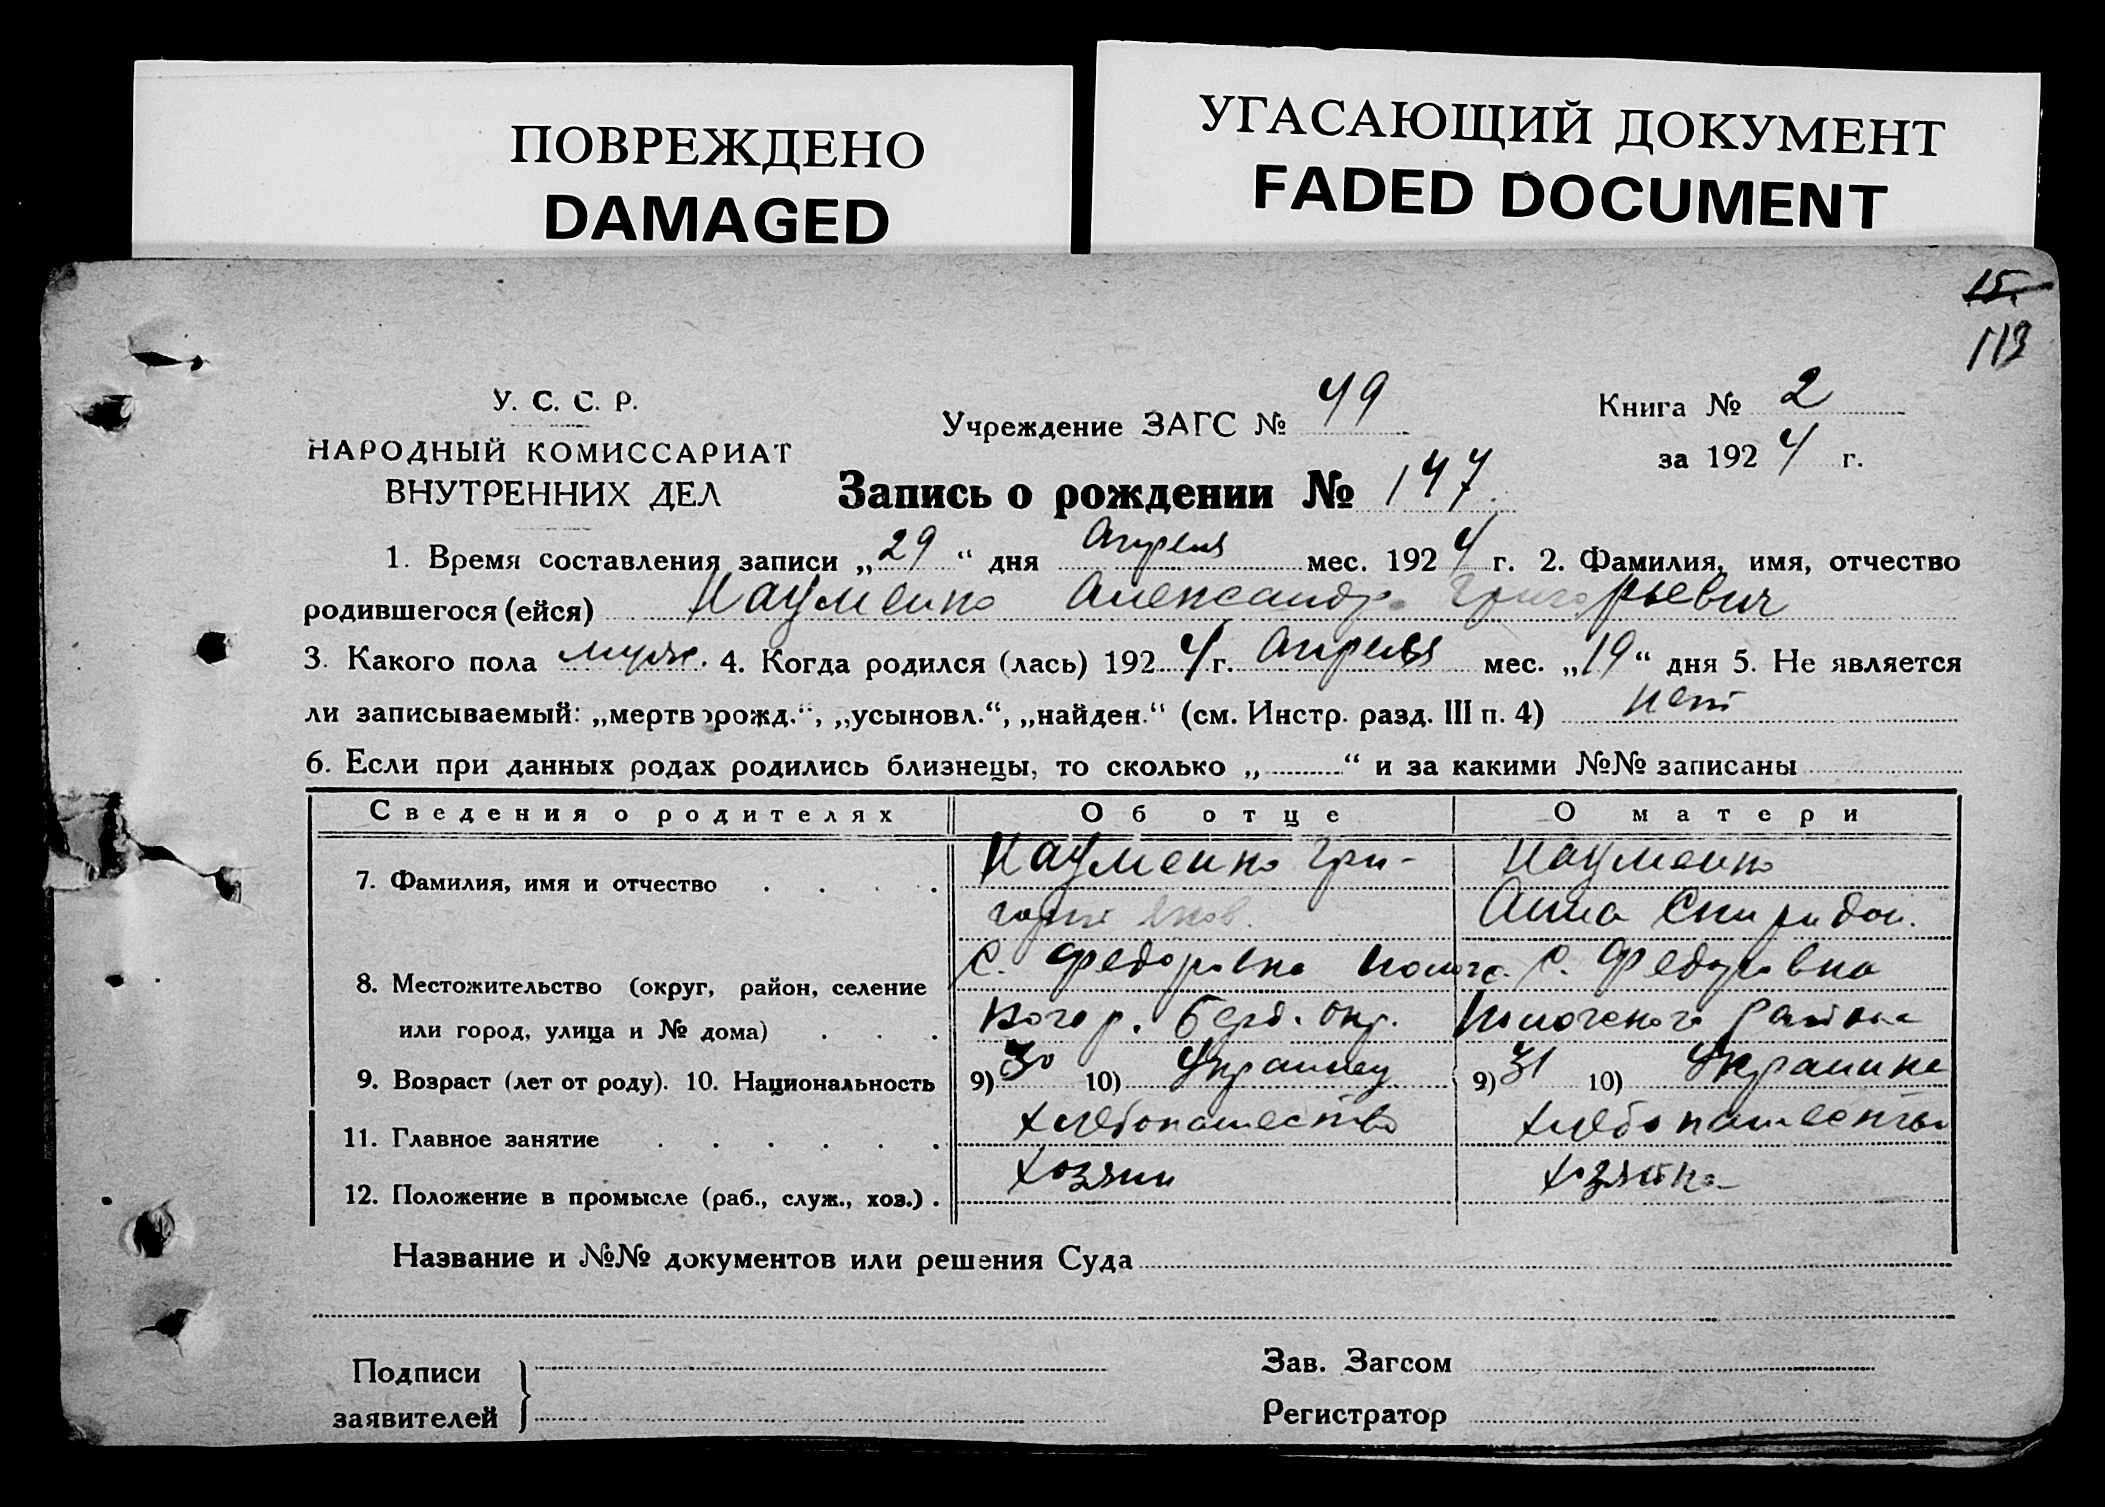 ПОВРЕЖДЕНО
DAMAGED
УГАСАЮЩИЙ ДОКУМЕНТ
FADED DOCUMENT
15.
113
У. С. С. Р.
НАРОДНЫЙ КОМИССАРИАТ
ВНУТРЕННИХ ДЕЛ
Учреждение ЗАГС № 49
Книга № 2
за 1924 г.
Запись о рождении № 147.
1. Время составления записи „29“ дня Апреля мес. 1924 г. 2. Фамилия, имя, отчество
родившегося (ейся) Науменко Александр Григорьевич
3. Какого пола муж. 4. Когда родился (лась) 1924 г. Апреля мес. „19“ дня 5. Не является
ли записываемый: „мертворожд.“, „усыновл.“, „найден.“ (см. Инстр. разд. III п. 4) нет
6. Если при данных родах родились близнецы, то сколько „..........“ и за какими №№ записаны
Сведения о родителях Об отце О матери
7. Фамилия, имя и отчество . . . . Науменко Гри- Науменко
горий Анна Спиридон.
С. Федоровка С. Федоровка
8. Местожительство (округ, район, селение
или город, улица и № дома) . . . р. Берд. окр. района
9. Возраст (лет от роду). 10. Национальность 9) 30 10) Украинец 9) 31 10) Украинка
11. Главное занятие . . . . . . хлебопашество хлебопашество
12. Положение в промысле (раб., служ., хоз.) . хозяин хозяйка
Название и №№ документов или решения Суда
Подписи
заявителей
Зав. Загсом
Регистратор